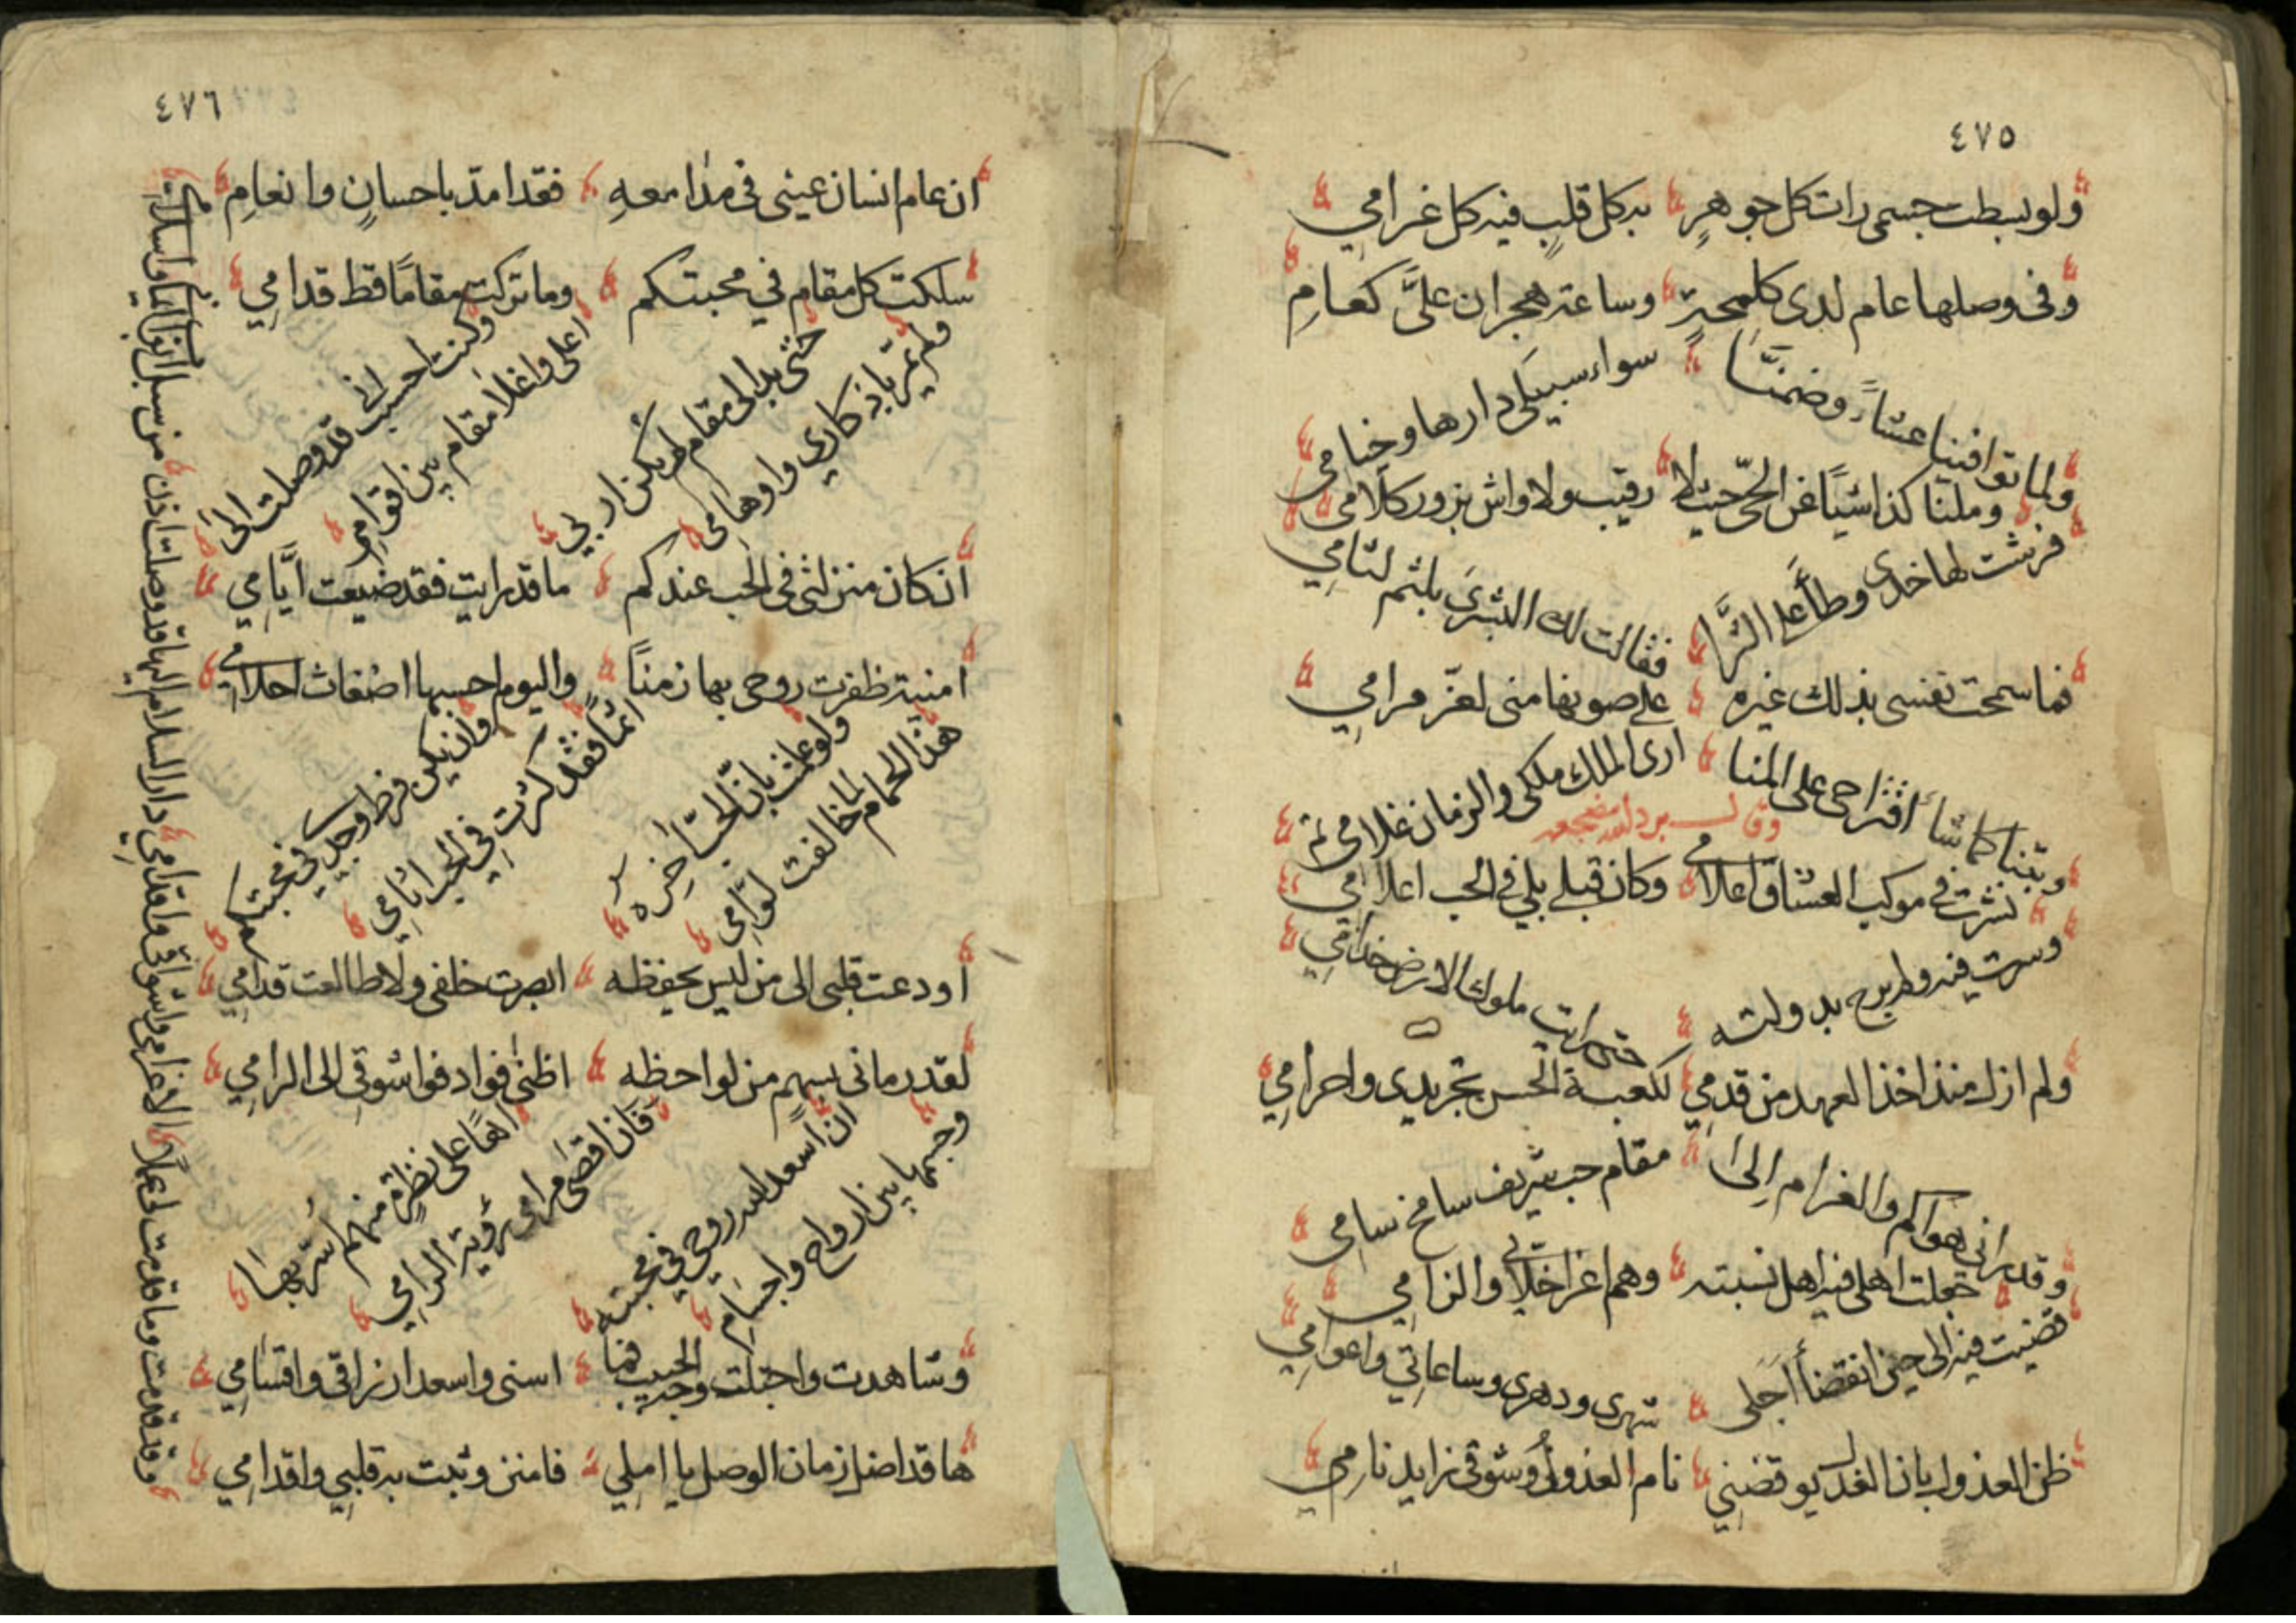 ٤٧٥
ولو بسطت جسمي رات كل جوهرٍ به كل قلبٍ فيه كل غرامي
وفى وصلها عام لدى كلمحةٍ وساعة هجران علىَّ كعامِ
ولما توافينا عشاءً وضمنَّا سواء سبيلَى دارها وخيامي
وملنا كذا شيًا عن الحيّ حيث لا رقيب ولا واش بزور كلامي
فرشت لها خدى وطأً على الثَّرا فقالت لك البشرَى بلثم لثامي
فما سمحت نفسى بذلك غيرة على صونها منى لعزّ مرامي
وبتنا كما شاء اقتراحى على المنا ارى الملك ملكى والزمان غلامى تم
وقال برد الله مضجعه
نشرت في موكب العشاق اعلامي وكان قبلى بلي في الحب اعلامي
وسرت فيه ولم ابرح بدولته حتى رايت ملوك الارض خدامي
ولم ازل منذ اخذ العهد من قدمي لكعبة الحسن تجريدى واحرامي
وقد رانى هواكم والغرام إلى مقام حب شريف سامخ سامى
جهلت اهلى فيه اهل نسبته وهم اعز اخلائي والزامي
قضيت فيه الى حين انقضأ اجَلى شهرى ودهرى وساعاتي واعوامي
ظن العذول بان العذل يوقفني نام العذول وشوقى زايد نامي
٤٧٦
ان عام انسان عينى فى مدامعهِ فقد امدّ باحسانٍ وانعامِ
سلكت كل مقام في محبتكم وما تركت مقامًا قط قدامي
وكنت احسب انى قد وصلت الى اعلى واغلا مقام بين اقوامي
حتى بدا لى مقام لم يكن اربي ولم يمرّ بافكاري واوهامي
ان كان منزلتى فى الحب عندكم ما قد رايت فقد ضيعت ايَّامِي
امنية ظفرت روحى بها زمنًا واليوم احسبها اضغاث احلامي
وان يكن فرط وجدي في محبتكم اثمًا فقد كثرت في الحب اثامي
ولو علمت بانّ الحبّ اخره هذا الحمام لما خالفت لوّامي
اودعت قلبى الى من ليس يحفظه ابصرت خلفى ولا طالعت قدامي
لقد رمانى بسهم من لواحظه اظنى فوادى فوا شوقى الى الرامي
اهًا على نظرة منهم اسرّ بها فان اقصى مرامى رؤية الرامي
ان اسعد الله روحي في محبته وجسمها بين ارواح واجسامِ
وشاهدت واجتلت وجه الحبيب فما اسنى واسعد ارزاقى واقسامي
ها قد اضل زمان الوصل يا املي فامنن وثبت به قلبي واقدامي
وقد قدمت وما قدمت لى عملًا الا غرامى واشواقى واقدامى
دار السلام اليها قد وصلت اذن من سبل ابواب